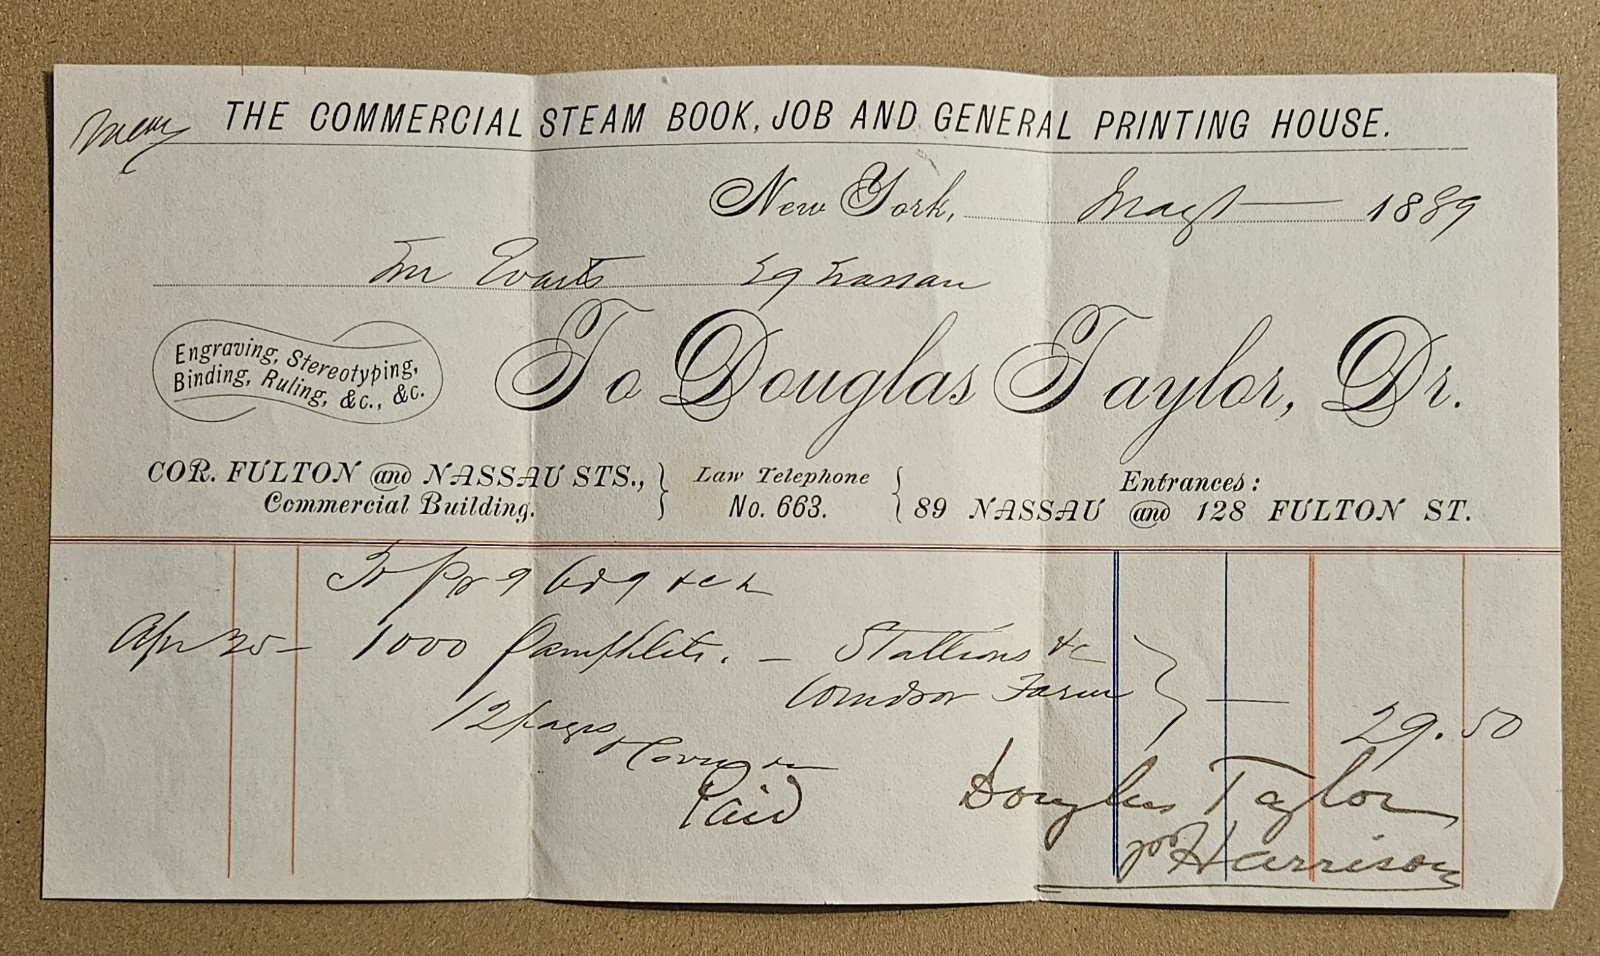 THE COMMERCIAL STEAM BOOK, JOB AND GENERAL PRINTING HOUSE.
New York, May 1 1889
Evarts Nassau
Engraving, Stereotyping,
Binding, Ruling, &c., &c.
To Douglas Taylor, Dr.
COR. FULTON and NASSAU STS.,
Commercial Building.
Law Telephone
No. 663.
Entrances:
89 NASSAU and 128 FULTON ST.
Apr 25 – 1000 Pamphlets. – Stallions &c
Windsor Farm
12 pages & Cover
29.50
Paid
Douglas Taylor
pr Harrison